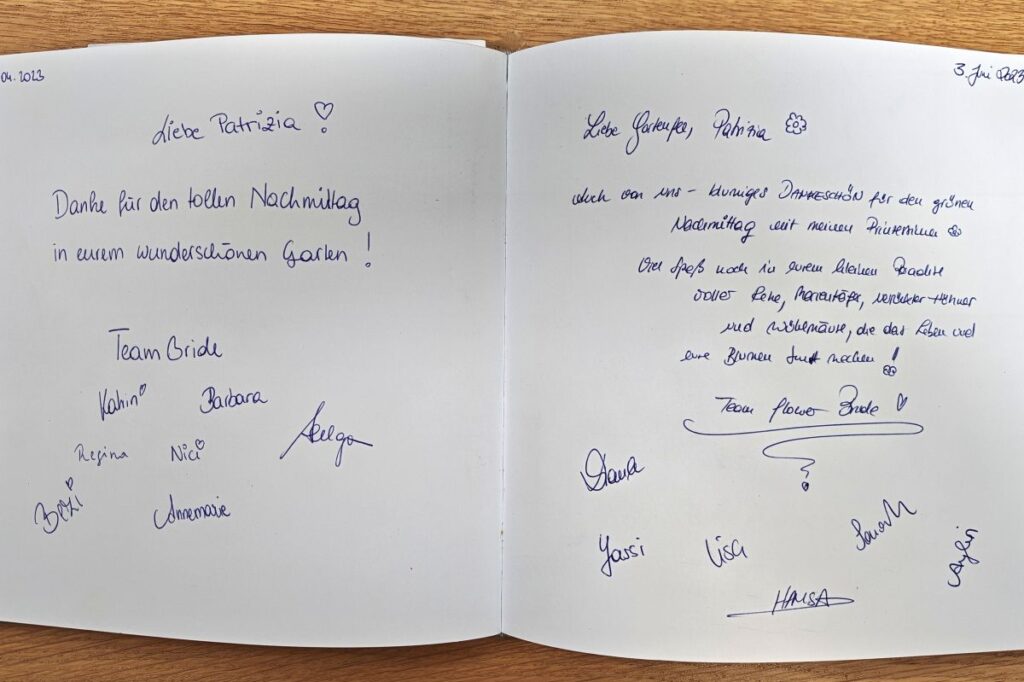 04.2023
Liebe Patrizia !
Danke für den tollen Nachmittag
in eurem wunderschönen Garten !
Team Bride
Barbara
Regina Nici
Annemarie
3. Juni 2023
Liebe Gartenfee, Patrizia
Auch von uns - blumiges DANKESCHÖN für den grünen
Nachmittag mit meinen Prinzessinnen
Viel Spaß noch in eurem kleinen Paradies
voller Rehe, Marienkäfer, verrückter Hühner
und Wühlmäuse, die das Leben und
eure Blumen bunt machen !
Team flower Bride
Diana
Yassi Lisa Sarah
HAMSA